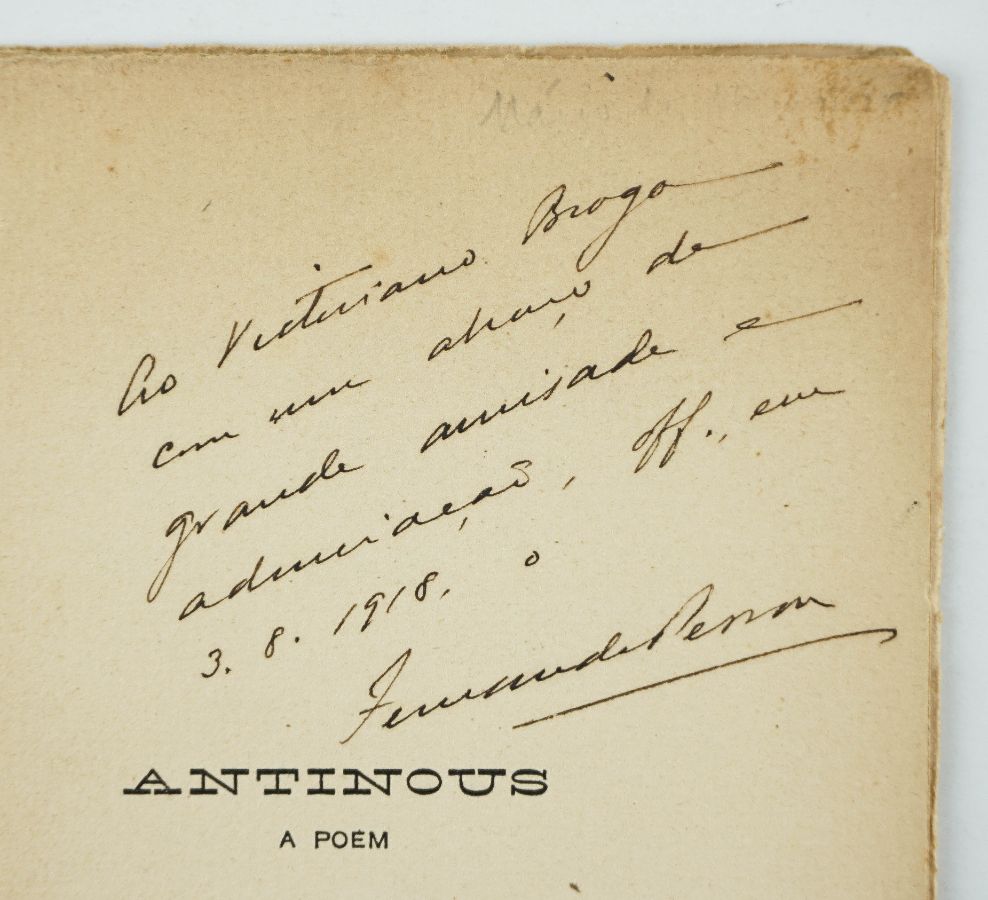 Mário de
Ao Victoriano Braga
com um abraço de
grande amisade e
admiração, off., em
3. 8. 1918. o
Fernando Pessoa
ANTINOUS
A POEM